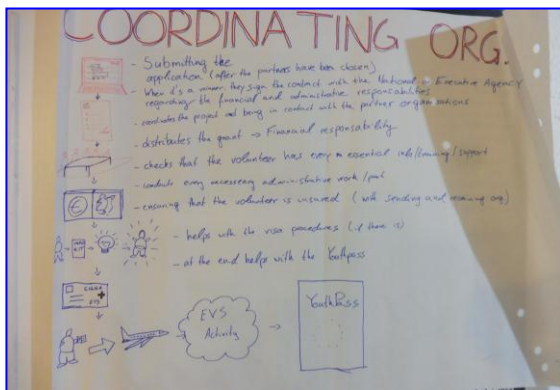 COORDINATING ORG.
- Submitting the
application (after the partners have been chosen)
- When it's a winner, they sign the contract with the National or Executive Agency
regarding the financial and administrative responsibilities
- coordinates the project and being in contact with the partner organisations
- distributes the grant → Financial responsability
- checks that the volunteer has every essential info/training/support
- conducts every necessary administrative work/part
- ensuring that the volunteer is insured (both sending and receiving org)
- helps with the visa procedures (if there is)
- at the end helps with the Youthpass
EVS
EVS
Activity
YouthPass